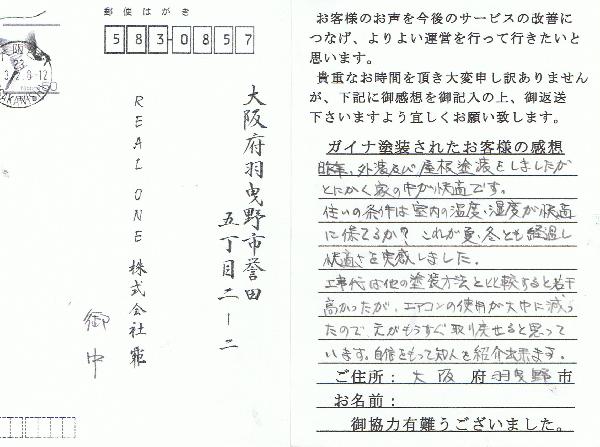 郵便はがき
583-0857
大阪府羽曳野市誉田
五丁目二ー二
REAL ONE 株式会社
御中
お客様のお声を今後のサービスの改善に
つなげ、よりよい運営を行って行きたいと
思います。
貴重なお時間を頂き大変申し訳ありません
が、下記に御感想を御記入の上、御返送
下さいますよう宜しくお願い致します。
ガイナ塗装されたお客様の感想
昨年、外装及び屋根塗装をしましたが
とにかく家の中が快適です。
住いの条件は室内の温度、湿度が快適
に保てるか? これが夏、冬とも経過し
快適さを実感しました。
工事代は他の塗装方法と比較すると若干
高かったが、エアコンの使用が大巾に減っ
たので、元がもうすぐ取り戻せると思って
います。自信をもって知人を紹介出来ます。
ご住所:大阪府羽曳野市
お名前:
御協力有難うございました。